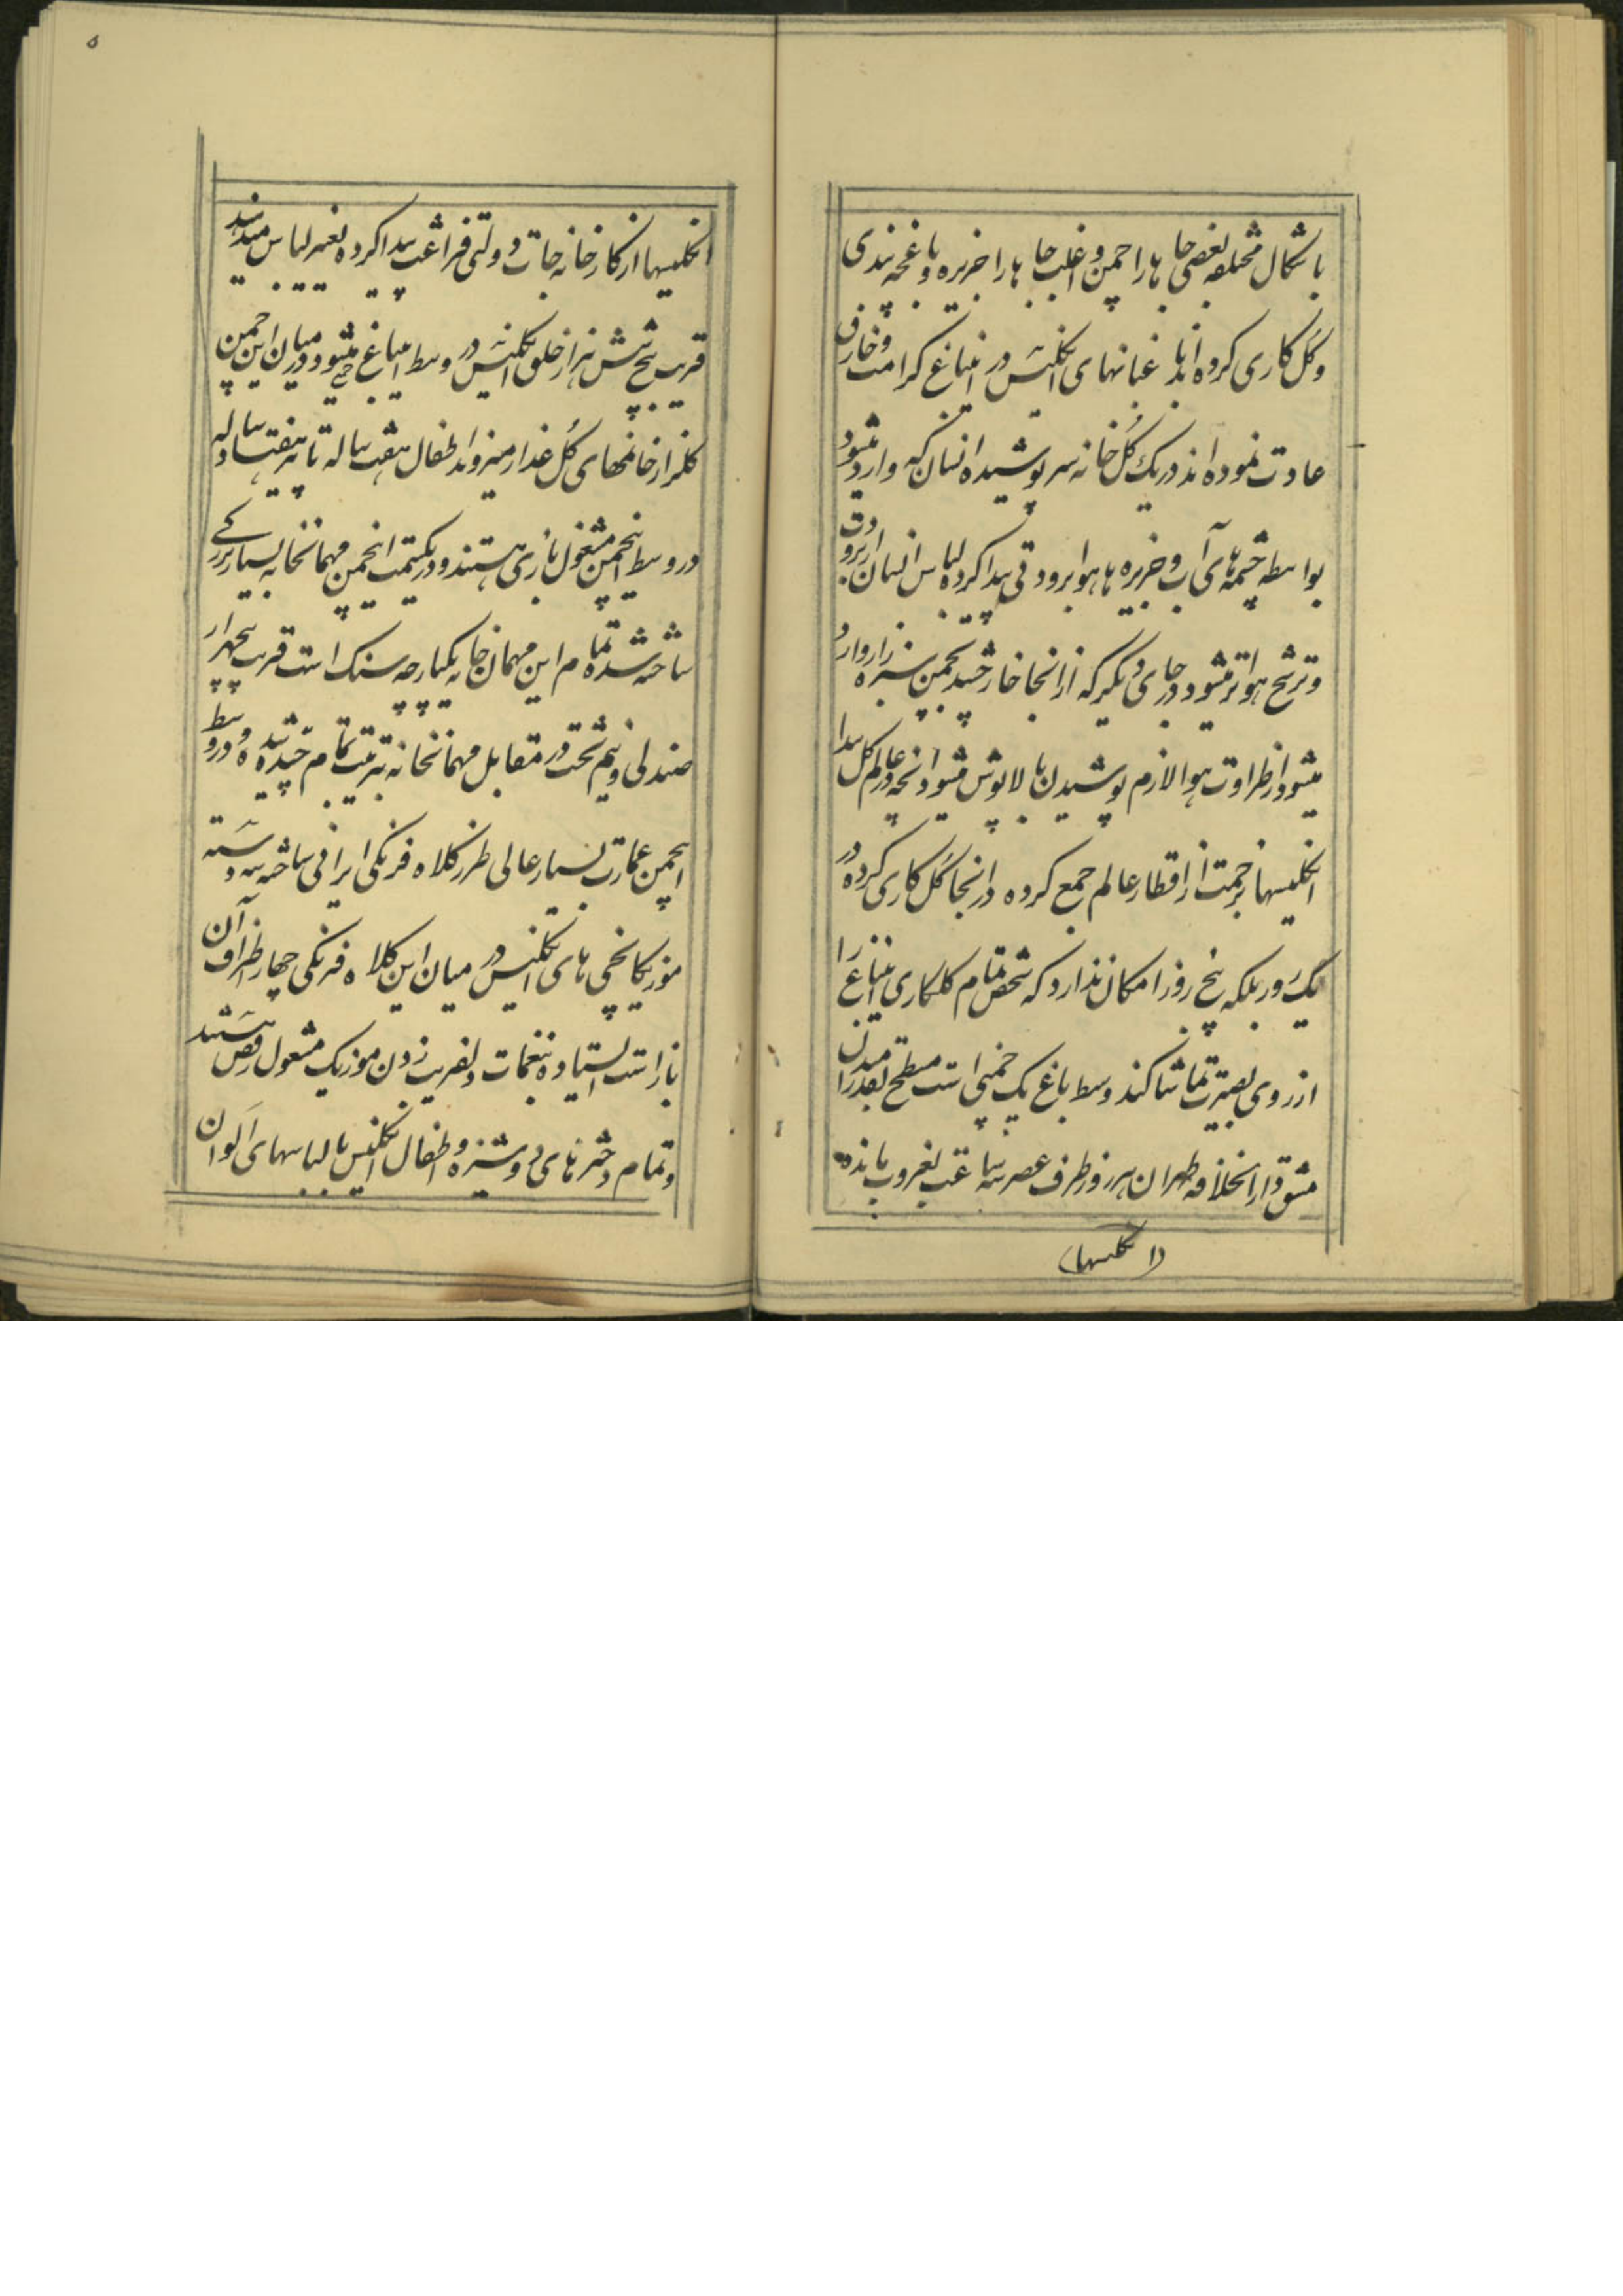 باشکال مختلفه بعضی جا ها را چمن و اغلب جا ها را جزیره و باغچه بندی
و گل کاری کرده اند باغبانهای انگلیس در اینباغ کرامت و خارق
عادت نموده اند در یک گل خانه سر پوشیده انسان که وارد میشود
بواسطه چشمه های آب و جزیره ها هوا برودتی پیدا کرده لباس انسان از برودت
و ترشح هوا تر میشود در جای دیگر که از انجا خارج شد بچمن سبزه زار وارد
میشود از طراوت هوا لازم پوشیدن بالاپوش میشود آنچه در عالم گل پیدا
انگلیسها بزحمت از اقطار عالم جمع کرده در انجا گل کاری کرده در
یک روز بلکه پنج روز امکان ندارد که شخص تمام گلکاری اینباغ را
از روی بصیرت تماشا کند وسط باغ یک چمنی است مسطح بقدر میدان
مشق دارالخلافه طهران هر روز طرف عصر سه ساعت بغروب مانده
(انگلیسها)
۵
انگلیسها از کارخانه جات دولتی فراغت پیدا کرده تغییر لباس میدهند
قریب پنج شش هزار خلق انگلیس در وسط اینباغ جمع میشود در میان این چمن
گلزار خانمهای گل عذار میروند اطفال هفت ساله تا هفتاد ساله
در وسط اینچمن مشغول بازی هستند و در یکسمت اینچمن مهمانخانه بسیار بزرگی
ساخته شده تمام این مهمان خانه یکپارچه سنک است قریب چهار
صندلی و نیم تخت در مقابل مهمانخانه بترتیب تمام چیده شده و در وسط
اینچمن عمارت بسیار عالی طرز کلاه فرنگی ایرانی ساخته سه دسته
موزیکانچی های انگلیس در میان این کلاه فرنگی چهار اطراف آن
باز است ایستاده بنغمات دلفریب زدن موزیک مشغول رقص هستند
و تمام دخترهای دوشیزه و اطفال انگلیس با لباسهای الوان